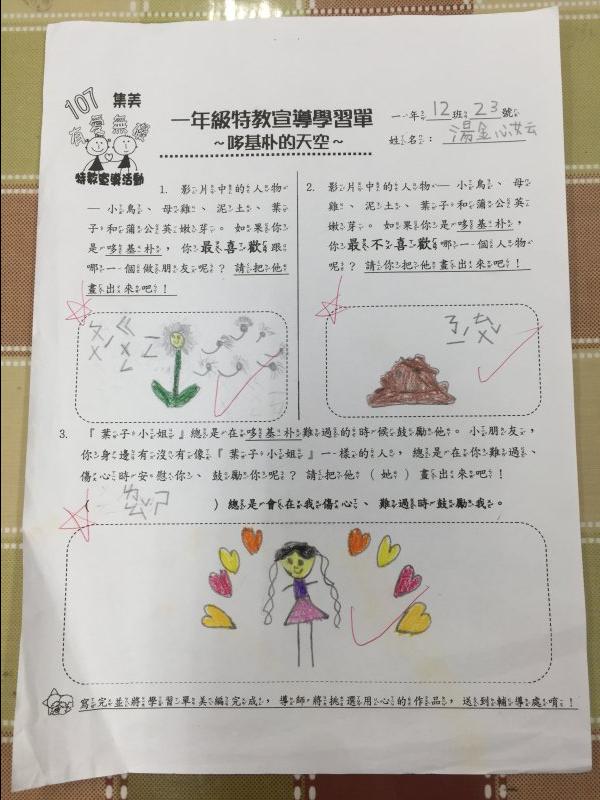 107
集美
有愛無礙
特教宣導活動
一年級特教宣導學習單
~哆基朴的天空~
一年12班23號
姓名：湯金心妘
1. 影片中的人物
—小鳥、母雞、泥土、葉
子和蒲公英嫩芽。如果你
是哆基朴，你最喜歡跟
哪一個做朋友呢？請把他
畫出來吧！
2. 影片中的人物
—小鳥、母
雞、泥土、葉子和蒲公英
嫩芽。如果你是哆基朴，
你最不喜歡哪一個人物
呢？請你把他畫出來吧！
ㄆㄨˊ ㄍㄨㄥ ㄧㄥ
ㄋㄧˊ ㄊㄨˇ
3. 『葉子小姐』總是在哆基朴難過的時候鼓勵他。小朋友，
你身邊有沒有像『葉子小姐』一樣的人，總是在你難過、
傷心時安慰你、鼓勵你呢？請把他（她）畫出來吧！
( ) 總是會在我傷心、難過時鼓勵我。
寫完並將學習單美編完成，導師將挑選用心的作品，送到輔導處唷！